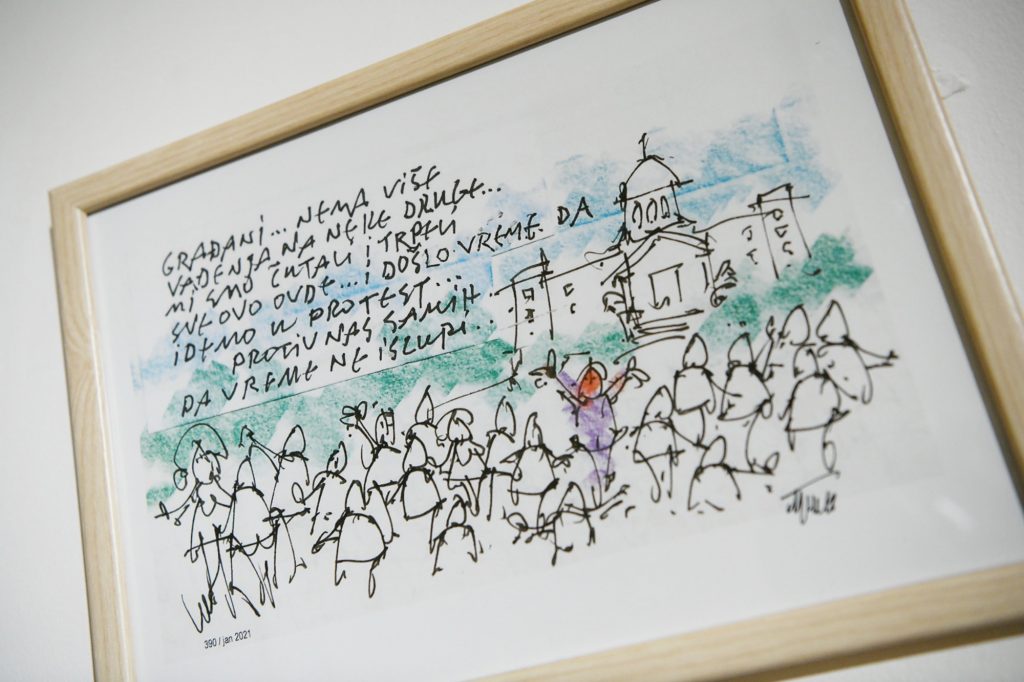 GRAĐANI... NEMA VIŠE
VAĐENJA NA NEKE DRUGE...
MI SMO ĆUTALI I TRPELI
SVE OVO OVDE... I DOŠLO VREME DA
IDEMO U PROTEST...
PROTIV NAS SAMIH
DA VREME NE ISCURI...
390 / jan 2021